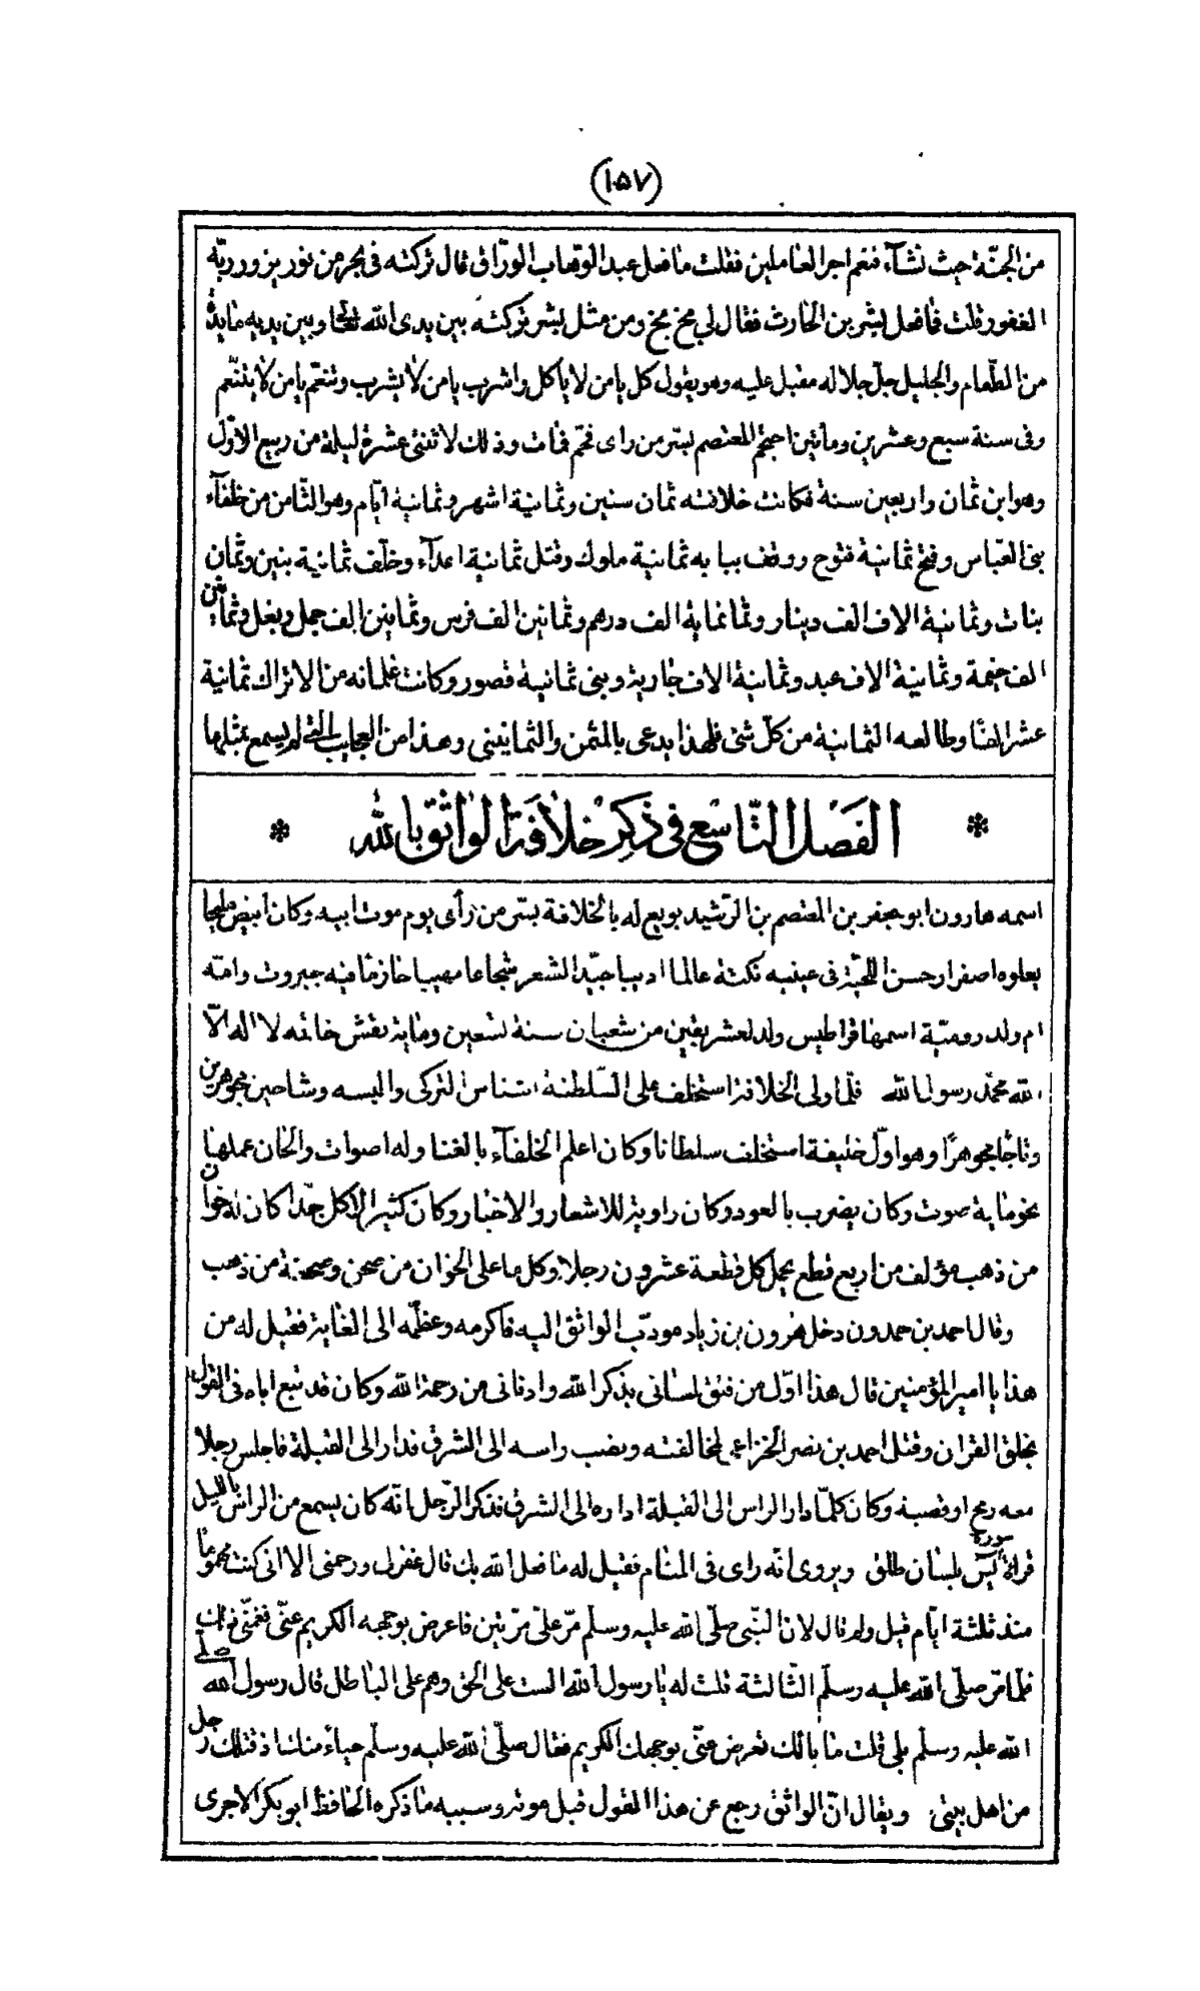 (١٥٧)
من الجنّة حيث نشآء فنعم اجر العاملين فقلت ما فعل عبد الوهاب الورّاق قال تركته فى بحر من نور يزور ربّه
الغفور قلت فما فعل بشر بن الحارث فقال لى بخ بخ ومن مثل بشر تركته بين يدى الله تعالى وبين يديه مايدة
من الطّعام والجليل جلّ جلاله مقبل عليه وهو يقول كل يا من لا ياكل واشرب يا من لا يشرب وتنعّم يا من لا يتنعّم
وفى سنة سبع وعشرين ومأتين احتجم المعتصم بسرّ من راى فحمّ فمات وذلك لاثنتى عشرة ليلة من ربيع الاوّل
وهو ابن ثمان واربعين سنة فكانت خلافته ثمان سنين وثمانية اشهر وثمانية ايّام وهو الثّامن من خلفآء
بنى العبّاس وفتح ثمانية فتوح ووقف ببابه ثمانية ملوك وقتل ثمانية اعدآء وخلّف ثمانية بنين وثمان
بنات وثمانية الاف الف دينار وثمانماية الف درهم وثمانين الف فرس وثمانين الف جمل وبغل وثمانين
الف خيمة وثمانية الاف عبد وثمانية الاف جارية وبنى ثمانية قصور وكانت غلمانه من الاتراك ثمانية
عشر الفًا وطالعه الثمانية من كلّ شئ فلهذا يدعى بالمثمن والثمانينى وهذا من العجايب التى لم يسمع بمثلها
* الفصل التّاسع فى ذكر خلافة الواثق بالله *
اسمه هارون ابو جعفر بن المعتصم بن الرّشيد بويع له بالخلافة بسرّ من رأى يوم موت ابيه وكان ابيض مليحا
يعلوه اصفرار حسن اللحيّة فى عينيه نكتة عالما اديبا جيّد الشعر شجاعا مهيبا حازما فيه جبروت وامّه
ام ولد روميّة اسمها قراطيس ولد لعشر بقين من شعبان سنة تسعين وماية نقش خاتمه لا اله الّا
الله محمّد رسول الله فلمّا ولى الخلافة استخلف على السّلطنة اشناس التركى والبسه وشاحين مجوهرين
وتاجًا مجوهرًا وهو اوّل خليفة استخلف سلطانا وكان اعلم الخلفآء بالغنا وله اصوات والحان عملها
نحو ماية صوت وكان يضرب بالعود وكان راوية للاشعار والاخبار وكان كثير الاكل جدّا كان له خوان
من ذهب مؤلف من اربع قطع يحمل كل قطعة عشرون رجلا وكل ما على الخوان من صحن وصحفة من ذهب
وقال احمد بن حمدون دخل هرون بن زياد مودّب الواثق اليه فاكرمه وعظّمه الى الغاية فقيل له من
هذا يا امير المؤمنين قال هذا اوّل من فتق لسانى بذكر الله وادنانى من رحمة الله وكان قد تبع اباه فى القول
بخلق القران وقتل احمد بن نصر الخزاعى لمخالفته ونصب راسه الى الشرق فدار الى القبلة فاجلس رجلا
معه رمح او قصبة وكان كلّما دار الراس الى القبلة اداره الى الشرق فذكر الرّجل انّه كان يسمع من الراس بالليل
قراءة سورة يٓس بلسان طلق ويروى انّه راى فى المنام فقيل له ما فعل الله بك قال غفر لى ورحمنى الا انى كنت مغموما
منذ ثلثة ايّام قيل ولم قال لان النّبى صلّى الله عليه وسلّم مرّ علىّ مرّتين فاعرض بوجهه الكريم عنّى فغمّنى ذلك
فلما مرّ صلّى الله عليه وسلّم الثّالثة قلت له يا رسول الله الست على الحق وهم على الباطل قال رسول الله صلّى
الله عليه وسلّم بلى قلت ما بالك تعرض عنّى بوجهك الكريم فقال صلّى الله عليه وسلّم حياءً منك اذ قتلك رجل
من اهل بيتى ويقال انّ الواثق رجع عن هذا القول قبل موته وسببه ما ذكره الحافظ ابو بكر الاجرى